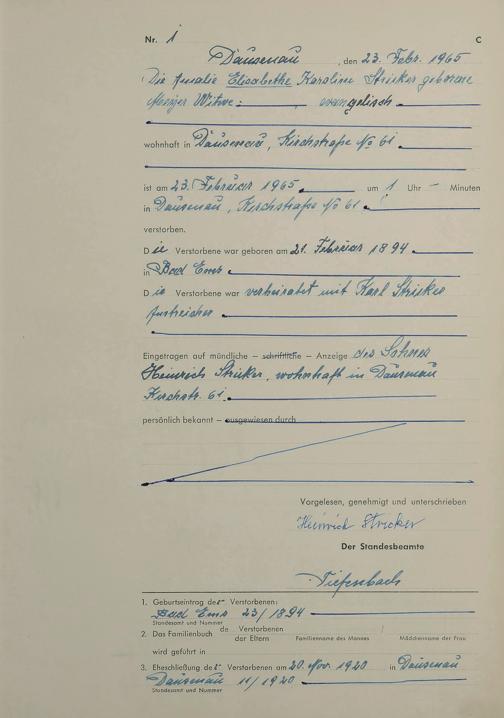 Nr. 1 C
Dausenau, den 23. Febr. 1965
Die Amalie Elisabethe Karoline Stricker geborene
Witwe: evangelisch
wohnhaft in Dausenau, Kirchstraße No 61
ist am 23. Februar 1965 um 1 Uhr — Minuten
in Dausenau, Kirchstraße No 61
verstorben.
Die Verstorbene war geboren am 21. Februar 1894
in Bad Ems
Die Verstorbene war verheiratet mit Karl Stricker
Anstreicher
Eingetragen auf mündliche – schriftliche – Anzeige des Sohnes
Heinrich Stricker, wohnhaft in Dausenau
Kirchstr. 61.
persönlich bekannt – ausgewiesen durch
Vorgelesen, genehmigt und unterschrieben
Heinrich Stricker
Der Standesbeamte
Tiefenbach
1. Geburtseintrag der Verstorbenen:
Bad Ems 23/1894
Standesamt und Nummer
2. Das Familienbuch de Verstorbenen
der Eltern Familienname des Mannes Mädchenname der Frau
wird geführt in
3. Eheschließung der Verstorbenen am 20. Nov. 1920 in Dausenau
Dausenau 11/1920
Standesamt und Nummer